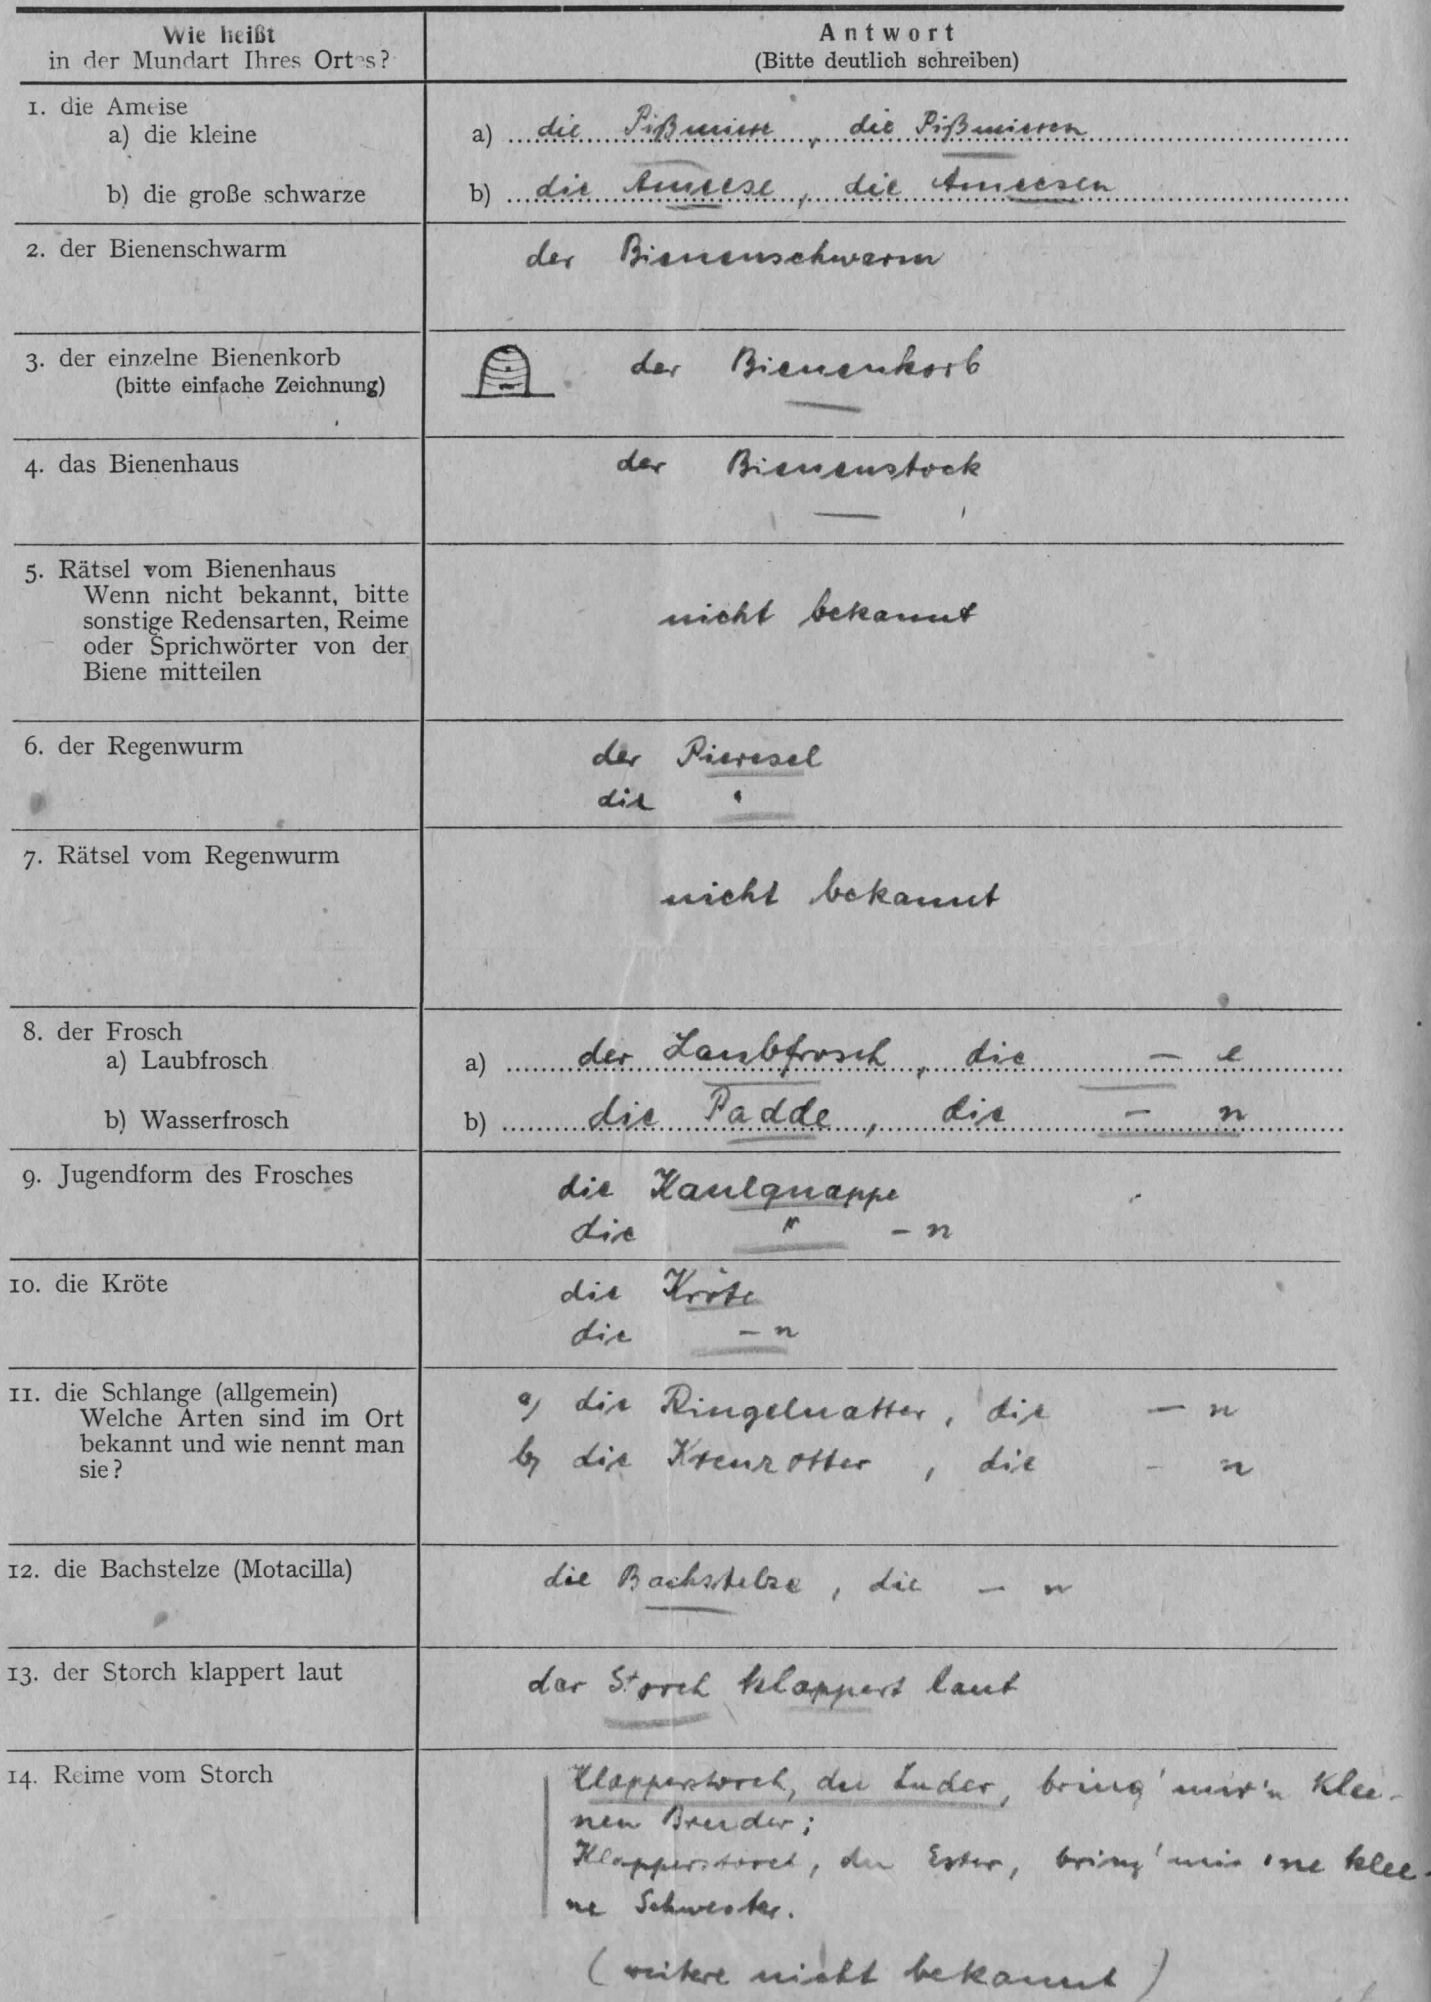 Wie heißt
in der Mundart Ihres Ortes?
Antwort
(Bitte deutlich schreiben)
1. die Ameise
a) die kleine
a) die Pißmiere, die Pißmieren
b) die große schwarze
b) die Ameese, die Ameesen
2. der Bienenschwarm
der Bienenschwarm
3. der einzelne Bienenkorb
(bitte einfache Zeichnung)
der Bienenkorb
4. das Bienenhaus
der Bienenstock
5. Rätsel vom Bienenhaus
Wenn nicht bekannt, bitte
sonstige Redensarten, Reime
oder Sprichwörter von der
Biene mitteilen
nicht bekannt
6. der Regenwurm
der Pieresel
die "
7. Rätsel vom Regenwurm
nicht bekannt
8. der Frosch
a) Laubfrosch
a) der Laubfrosch, die – e
b) Wasserfrosch
b) die Padde, die – n
9. Jugendform des Frosches
die Kaulquappe
die " – n
10. die Kröte
die Kröte
die – n
11. die Schlange (allgemein)
Welche Arten sind im Ort
bekannt und wie nennt man
sie?
a) die Ringelnatter, die – n
b) die Kreuzotter, die – n
12. die Bachstelze (Motacilla)
die Bachstelze, die – n
13. der Storch klappert laut
dar Storch klappert laut
14. Reime vom Storch
Klapperstorch, du Luder, bring' mir'n klee-
nen Bruder;
Klapperstorch, du Ester, bring' mir 'ne klee-
ne Schwester.
(weitere nicht bekannt)